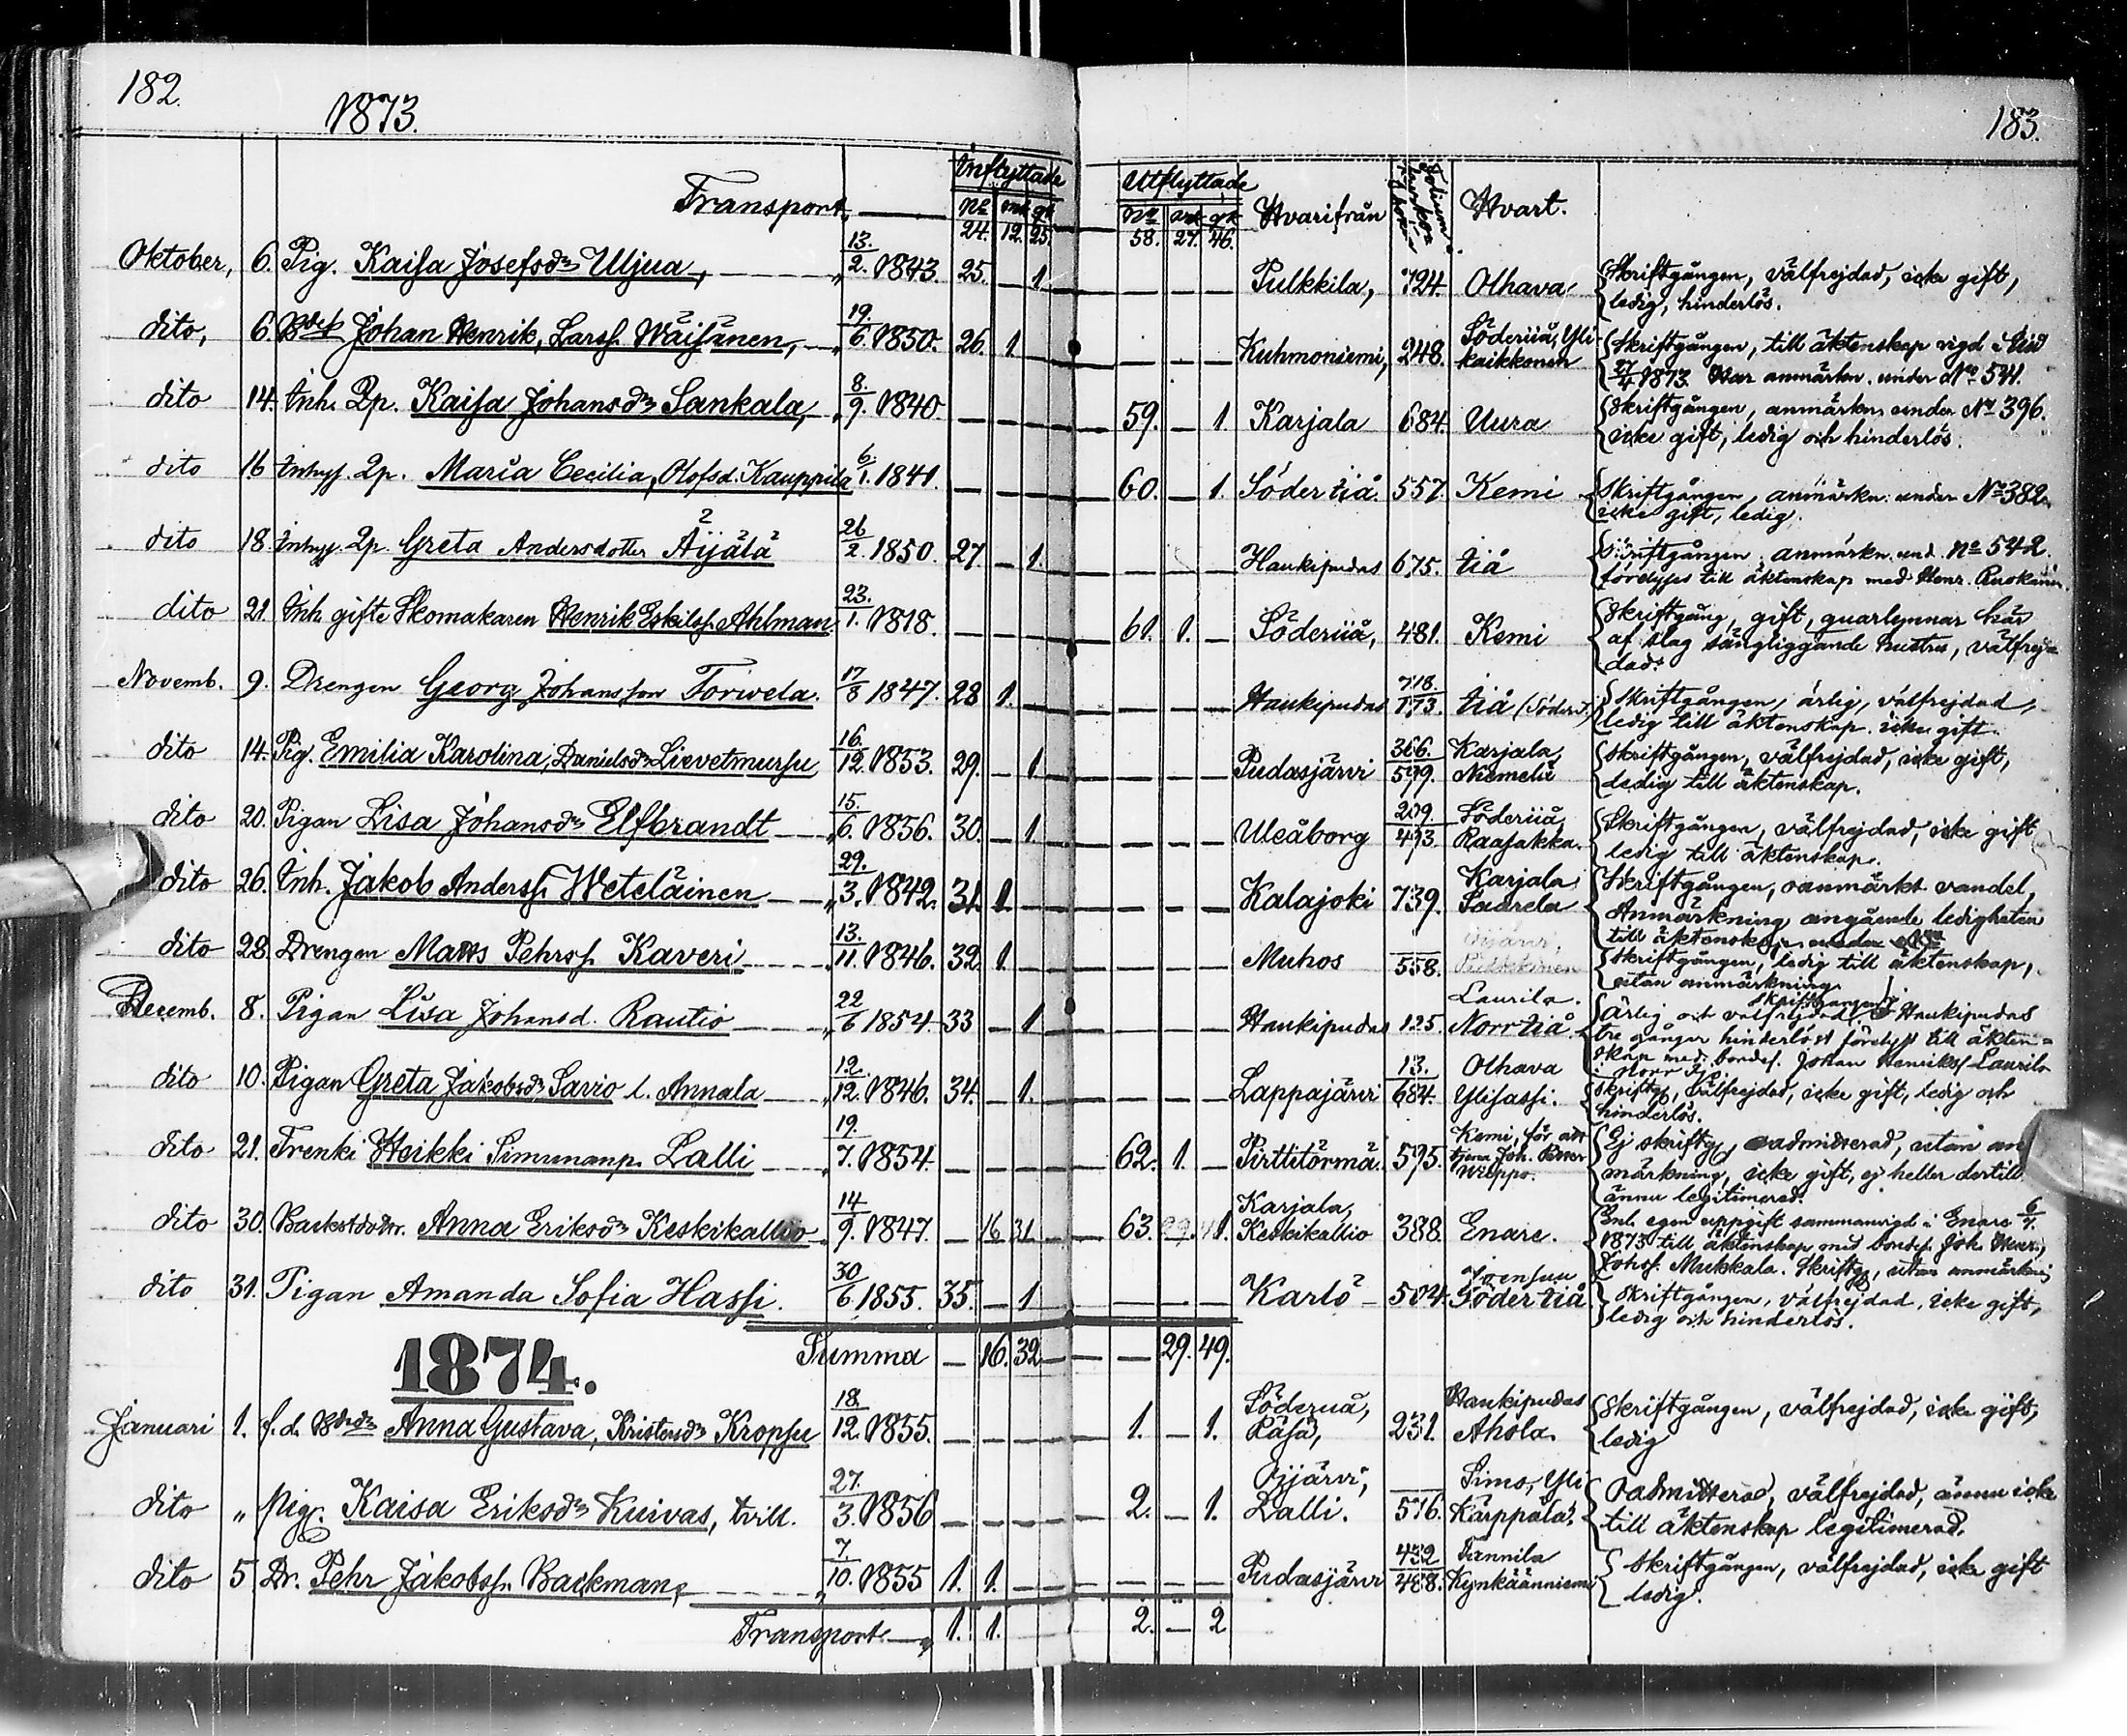 182.
1873.
183.
Inflyttade
Utflyttade
Transport
No mk qk
No mk qk
Hvarifrån
Hvart.
24. 12. 25.
58. 27. 46.
Oktober, 6. Pig. Kaisa Josefsdr Uljua, 13./2. 1843. 25. 1 Pulkkila, 724. Olhava
Skriftgången, välfrejdad, icke gift,
ledig, hinderlös.
dito, 6. Johan Henrik, Larsf. Wäisänen, 19./6. 1850. 26. 1. Kuhmoniemi, 248. Söderiiå, Yli-
kaikkonen
Skriftgången, till äktenskap vigd i
27/4 1873. Har anmärkn. under No 541.
dito 14. Inh. Dp. Kaisa Johansdr Sankala, 8./9. 1840. 59. 1. Karjala 684. Uura
Skriftgången, anmärkn. under No 396.
icke gift, ledig och hinderlös.
dito 16. Inhys. Dp. Maria Cecilia, Olofsd. Kauppila 6./1. 1841. 60. 1. Söder Iiå. 557. Kemi
Skriftgången, anmärkn. under No 382.
icke gift, ledig.
dito 18. Inhys. Dp. Greta Andersdotter Äijälä 26/2. 1850. 27. 1. Haukipudas 675. Iiå
Skriftgången. anmärkn. und. No 542.
till äktenskap med Henr.
dito 21. Inh. gifte Skomakaren Henrik Eskilsf. Ahlman. 23./1. 1818. 61. 1. Söderiiå, 481. Kemi
Skriftgång, gift, quarlemnar här
af slag sängliggande hustru, välfrej=
dad.
Novemb. 9. Drengen Georg Johansson Torwela. 17/8 1847. 28 1. Haukipudas 718./173. Iiå (Söder I.)
Skriftgången, ärlig, välfrejdad,
ledig till äktenskap. icke gift.
dito 14. Pig. Emilia Karolina, Danielsdr Lievetmursu 16./12. 1853. 29. 1. Pudasjärvi 366./579. Karjala,
Niemelä
Skriftgången, välfrejdad, icke gift,
ledig till äktenskap.
dito 20. Pigan Lisa Johansdr Elfbrandt 15./6. 1856. 30. 1. Uleåborg 209./493. Söderiiå,
Raasakka.
Skriftgången, välfrejdad, icke gift
ledig till äktenskap.
dito 26. Inh. Jakob Andersf. Weteläinen 29./3. 1842. 31. 1. Kalajoki 739. Karjala
Saarela
Skriftgången, oanmärkt vandel,
Anmärkning angående ledigheten
till äktenskap under
dito 28. Drengen Matts Pehrsf. Kaveri 13./11. 1846. 32. 1. Muhos 558.
Skriftgången, ledig till äktenskap,
utan anmärkning.
Decemb. 8. Pigan Lisa Johansd. Rautio 22/6 1854. 33 1 Haukipudas 125. Laurila.
Norr Iiå.
ärlig och välfrejdad, skriftgången, i Haukipudas
tre gånger hinderlöst förelyst till äkten=
skap med bondes. Johan Henriksf Laurila
i Norr Iiå.
dito 10. Pigan Greta Jakobsdr Savio l. Annala 12./12. 1846. 34. 1. Lappajärvi 13./684. Olhava
Ylisassi.
Skriftg, välfrejdad, icke gift, ledig och
hinderlös.
dito 21. Trenki Heikki Simunanp. Lalli 19./7. 1854. 62. 1. Pirttitörmä 595. Kemi, för att
tjena Joh.
Ej skriftg, oadmitterad, utan an
märkning, icke gift, ej heller dertill
ännu legitimerad.
dito 30. Anna Eriksdr Keskikallio 14/9. 1847. 16 31 63. 1. Karjala,
Keskikallio 388. Enare.
Enl. egen uppgift sammanvigd i Enare 6/7.
1873 till äktenskap med bondes. Joh. Henr.,
Johsf. Mukkala. Skriftg, utan anmärkning
dito 31. Pigan Amanda Sofia Hassi. 30/6. 1855. 35. 1 Karlö 504. Joensuu
Söder Iiå
Skriftgången, välfrejdad, icke gift,
ledig och hinderlös.
Summa 16. 32 29. 49.
1874.
Januari 1. f. d. Anna Gustava, Kristersdr Kropsu 18./12. 1855. 1. 1. Söderiiå,
Päsä, 231. Haukipudas
Ahola.
Skriftgången, välfrejdad, icke gift,
ledig
dito " Pig. Kaisa Eriksdr Kuivas, tvill. 27./3. 1856 2. 1. Oijärvi,
Lalli. 576. Simo, Yli
Kärppälä.
Oadmitterad, välfrejdad, ännu icke
till äktenskap legitimerad.
dito 5 Dr. Pehr Jakobsf. Backman, 7./10. 1855 1. 1. Pudasjärvi 452/488. Tannila
Kynkäänniemi
Skriftgången, välfrejdad, icke gift
ledig.
Transport 1. 1. 2. 2